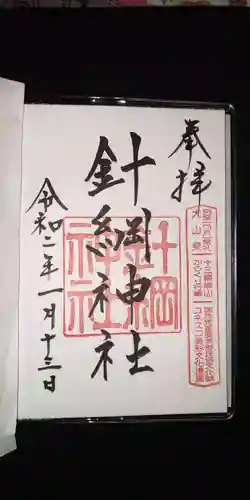 奉拝
犬山祭
針綱神社
針綱神社
令和二年一月十三日